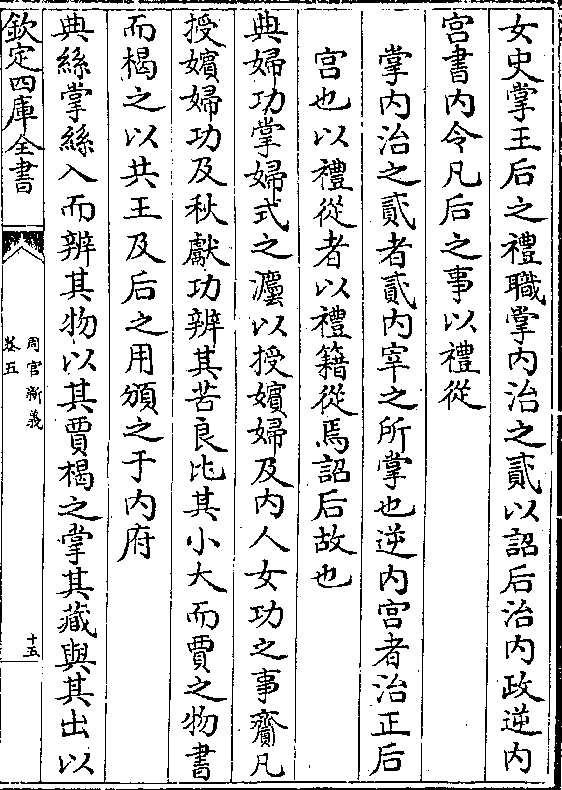 女史掌王后之禮職掌内治之貳以詔后治内政逆内
宫書内令凡后之事以禮從
掌内治之貳者貳内宰之所掌也逆内宫者治正后
宫也以禮從者以禮籍從焉詔后故也
典婦功掌婦式之灋以授嬪婦及内人女功之事齎凡
授嬪婦功及秋獻功辨其苦良比其小大而賈之物書
而楬之以共王及后之用頒之于内府
典絲掌絲入而辨其物以其賈楬之掌其藏與其出以
欽定四庫全書
周官新義
卷五
十五